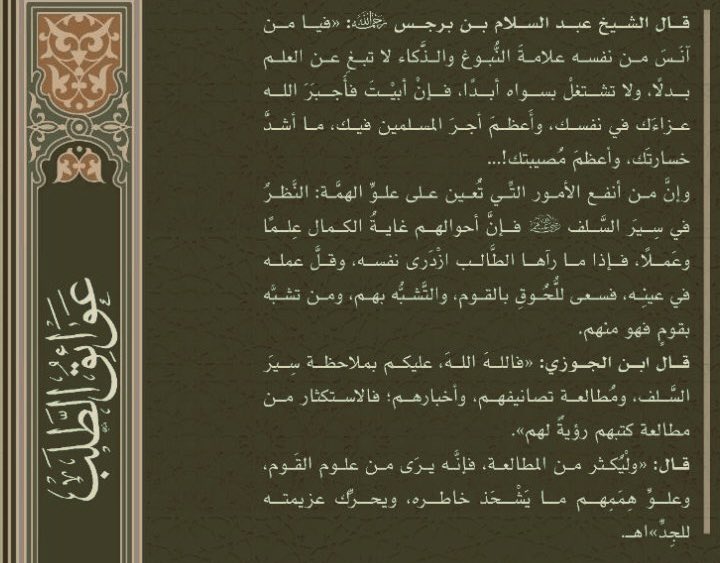 قال الشيخ عبد السلام بن برجس رحمه الله: «فيا من
آنَسَ من نفسه علامةَ النُّبوغ والذَّكاء لا تبغِ عن العلم
بدلًا، ولا تشتغلْ بسواه أبدًا، فإنْ أبيْتَ فأَجبَرَ الله
عزاءَك في نفسك، وأَعظمَ أجرَ المسلمين فيك، ما أشدَّ
خسارتَك، وأعظمَ مُصيبتك!...
وإنَّ من أنفع الأمور التَّي تُعين على علوِّ الهمَّة: النَّظرُ
في سِيَرَ السَّلف فإنَّ أحوالهم غايةُ الكمال عِلمًا
وعَملًا، فإذا ما رآها الطَّالب ازْدَرَى نفسه، وقلَّ عمله
في عينِه، فسعى للُّحُوقِ بالقوم، والتَّشبُّه بهم، ومن تشبَّه
بقومٍ فهو منهم.
قال ابن الجوزي: «فاللهَ اللهَ، عليكم بملاحظة سِيَرَ
السَّلف، ومُطالعة تصانيفهم، وأخبارهم؛ فالاستكثار من
مطالعة كتبهم رؤيةٌ لهم».
قال: «ولْيُكثر من المطالعة، فإنَّه يرَى من علوم القَوم،
وعلوِّ هِمَمِهم ما يَشْحَذ خاطره، ويحرِّك عزيمته
للجِدِّ»اهـ.
عَوَائِقُ الطَّلَبِ